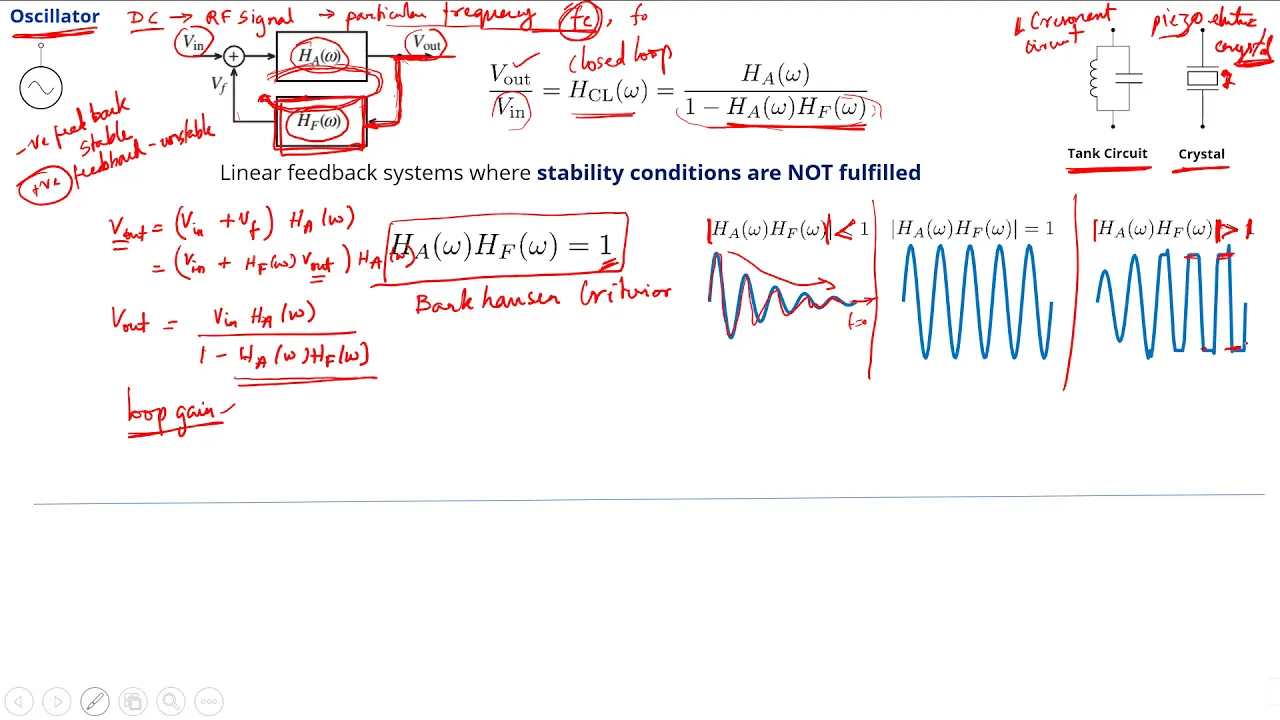 Oscillator
DC → RF Signal → particular frequency fc, fo
Vin
+
H_A(ω)
Vout
Vf
H_F(ω)
-ve feed back
stable
+ve feedback - unstable
closed loop
Vout/Vin = H_CL(ω) = H_A(ω) / (1 − H_A(ω)H_F(ω))
LC resonant
circuit
piezo electric
crystal
Tank Circuit
Crystal
Linear feedback systems where stability conditions are NOT fulfilled
Vout = (Vin + Vf) H_A(ω)
= (Vin + H_F(ω) Vout) H_A(ω)
Vout = Vin H_A(ω) / (1 - H_A(ω) H_F(ω))
loop gain
H_A(ω)H_F(ω) = 1
Bark hausen Criterion
|H_A(ω)H_F(ω)| < 1
t=∞
|H_A(ω)H_F(ω)| = 1
|H_A(ω)H_F(ω)| > 1